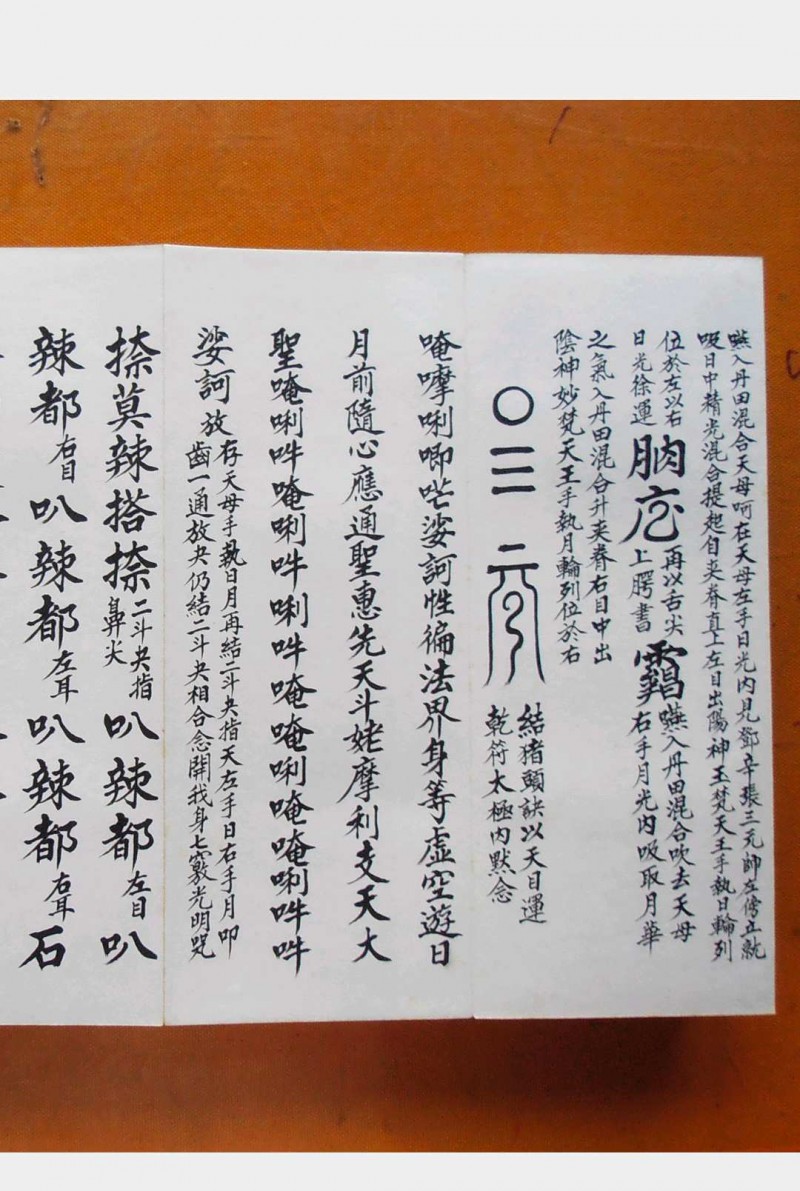 嚥入丹田混合天母呵在天母左手日光內見鄧辛張三元帥左傍立就
吸日中精光混合提起自夾脊直上左目出陽神玉梵天王手執日輪列
位於左以右
日光徐運
再以舌尖
上腭書
嚥入丹田混合吹去天母
右手月光內吸取月華
之氣入丹田混合升夾脊右目中出
陰神妙梵天王手執月輪列位於右
結猪頭訣以天目運
乾符太極內默念
唵嚤唎唧吂娑訶性徧法界身等虛空遊日
月前隨心應通聖惠先天斗姥摩利支天大
聖唵唎吽唵唎吽唎吽唵唵唎唵唵唎吽吽
娑訶放
存天母手執日月再結二斗夬指天左手日右手月叩
齒一通放夬仍結二斗夬相合念開我身七竅光明咒
捺莫辣搭捺二斗夬指鼻尖叭辣都左目叭
辣都右目叭辣都左耳叭辣都右耳石